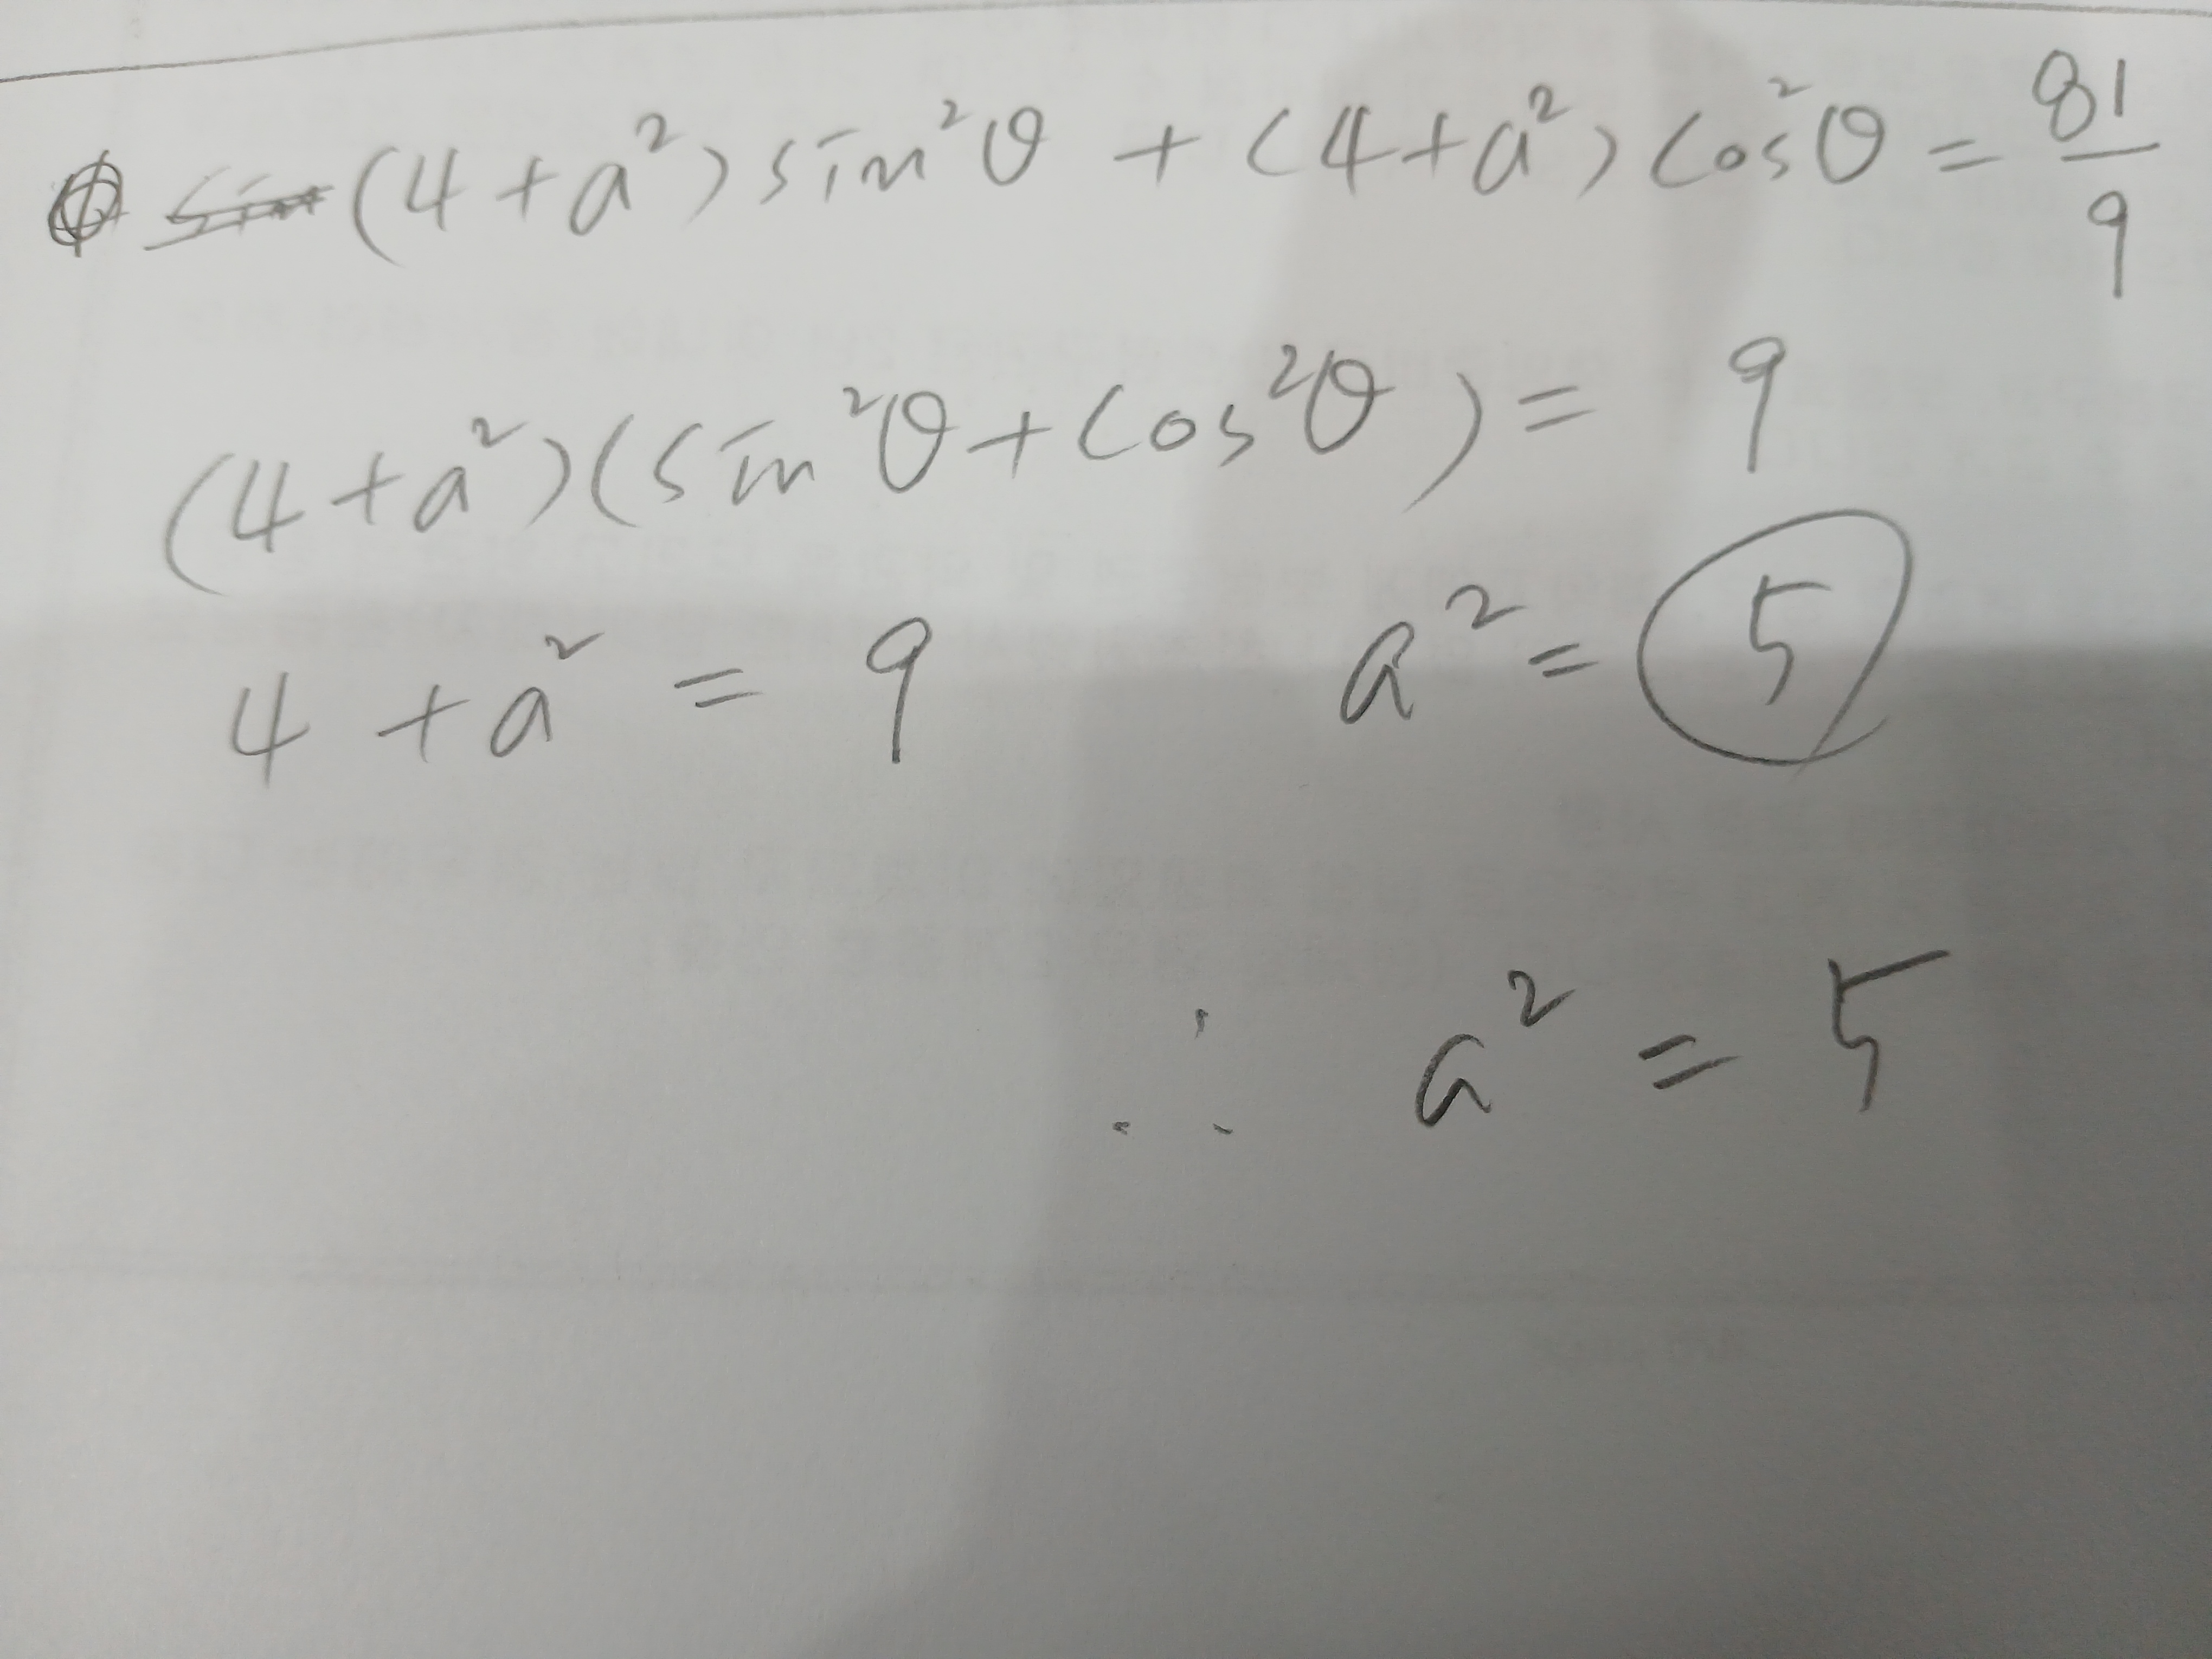 (4+a²)sin²θ + (4+a²)cos²θ = 81/9
(4+a²)(sin²θ+cos²θ) = 9
4+a² = 9 a² = 5
∴ a² = 5